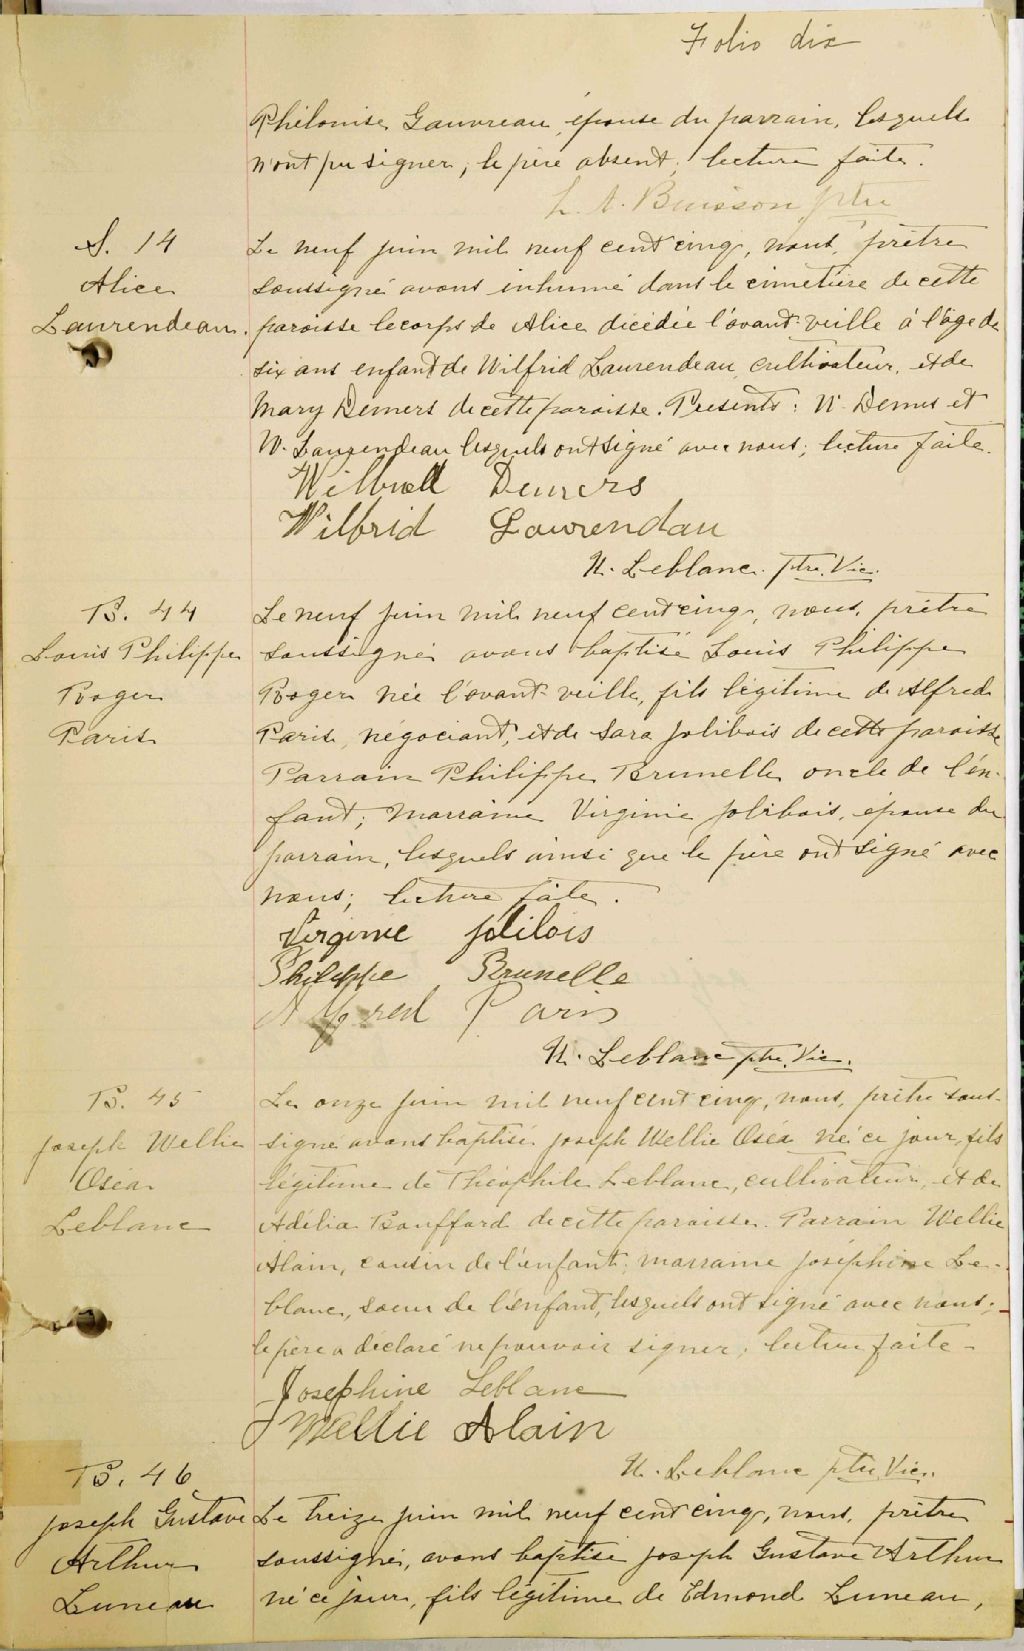 Folio dix
Philomise Gauvreau, épouse du parrain, lesquels
n'ont pu signer, le père absent; lecture faite.
L. A. Buisson ptre
S. 14
Alice
Laurendeau.
Le neuf juin mil neuf cent cinq, nous, prêtre
soussigné avons inhumé dans le cimetière de cette
paroisse le corps de Alice décédée l'avant-veille à l'âge de
six ans enfant de Wilfrid Laurendeau, cultivateur, et de
Mary Demers de cette paroisse. Présents: W. Demers et
W. Laurendeau lesquels ont signé avec nous; lecture faite.
Demers
Wilbrid Laurendau
N. Leblanc. ptre. Vic.
B. 44
Louis Philippe
Roger
Paris
Le neuf juin mil neuf cent cinq, nous, prêtre
soussigné avons baptisé Louis Philippe
Roger née l'avant-veille, fils légitime de Alfred
Paris, négociant, et de Sara Jolibois de cette paroisse
Parrain Philippe Brunelle oncle de l'en-
fant; marraine Virginie Jolibois, épouse du
parrain, lesquels ainsi que le père ont signé avec
nous; lecture faite.
Virginie Jolibois
Philippe Brunelle
Alfred Paris
N. Leblanc ptre. Vic.
B. 45
Joseph Wellie
Oséa
Leblanc
Le onze juin mil neuf cent cinq, nous, prêtre sous-
signé avons baptisé Joseph Wellie Oséa né ce jour, fils
légitime de Théophile Leblanc, cultivateur, et de
Adélia Bouffard de cette paroisse. Parrain Wellie
Alain, cousin de l'enfant; marraine Joséphine Le-
blanc, soeur de l'enfant, lesquels ont signé avec nous;
le père a déclaré ne pouvoir signer. lecture faite-
Josephine Leblanc
Wellie Alain
N. Leblanc ptre Vic.
B. 46
Joseph Gustave
Arthur
Luneau
Le treize juin mil neuf cent cinq, nous, prêtre
soussigné, avons baptisé Joseph Gustave Arthur
né ce jour, fils légitime de Edmond Luneau,